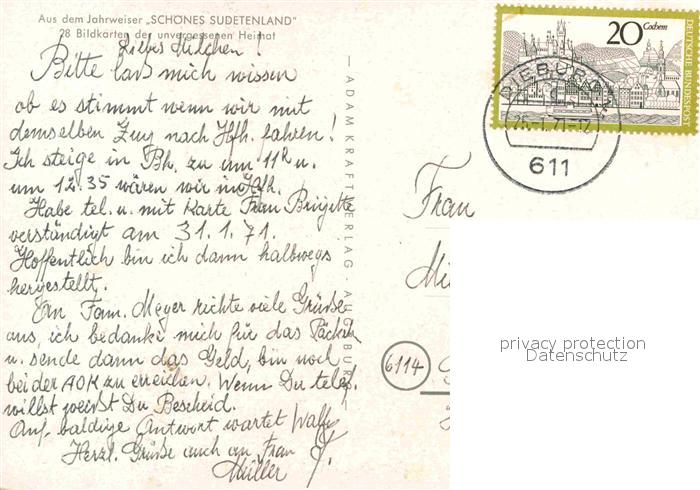 Aus dem Jahrweiser „SCHÖNES SUDETENLAND"
28 Bildkarten der unvergessenen Heimat
Liebes Milchen!
Bitte laß mich wissen
ob es stimmt wenn wir mit
demselben Zug nach Hfh. fahren!
Ich steige in Bh. zu um 11 u.
um 12.35 wären wir in Hfh.
Habe tel. u. mit Karte Frau Brigitte
verständigt am 31.1.71.
Hoffentlich bin ich dann halbwegs
hergestellt.
An Fam. Meyer richte viele Grüße
aus, ich bedanke mich für das
u. sende dann das Geld, bin noch
bei der AOK zu erreichen. Wenn Du telef.
willst weißt Du Bescheid.
Auf baldige Antwort wartet
Herzl. Grüße auch an Frau
Müller
— ADAM KRAFT VERLAG · AUGSBURG —
20 Cochem
DEUTSCHE BUNDESPOST
DIEBURG 1
25.-1.71-12
611
Frau
6114
privacy protection
Datenschutz